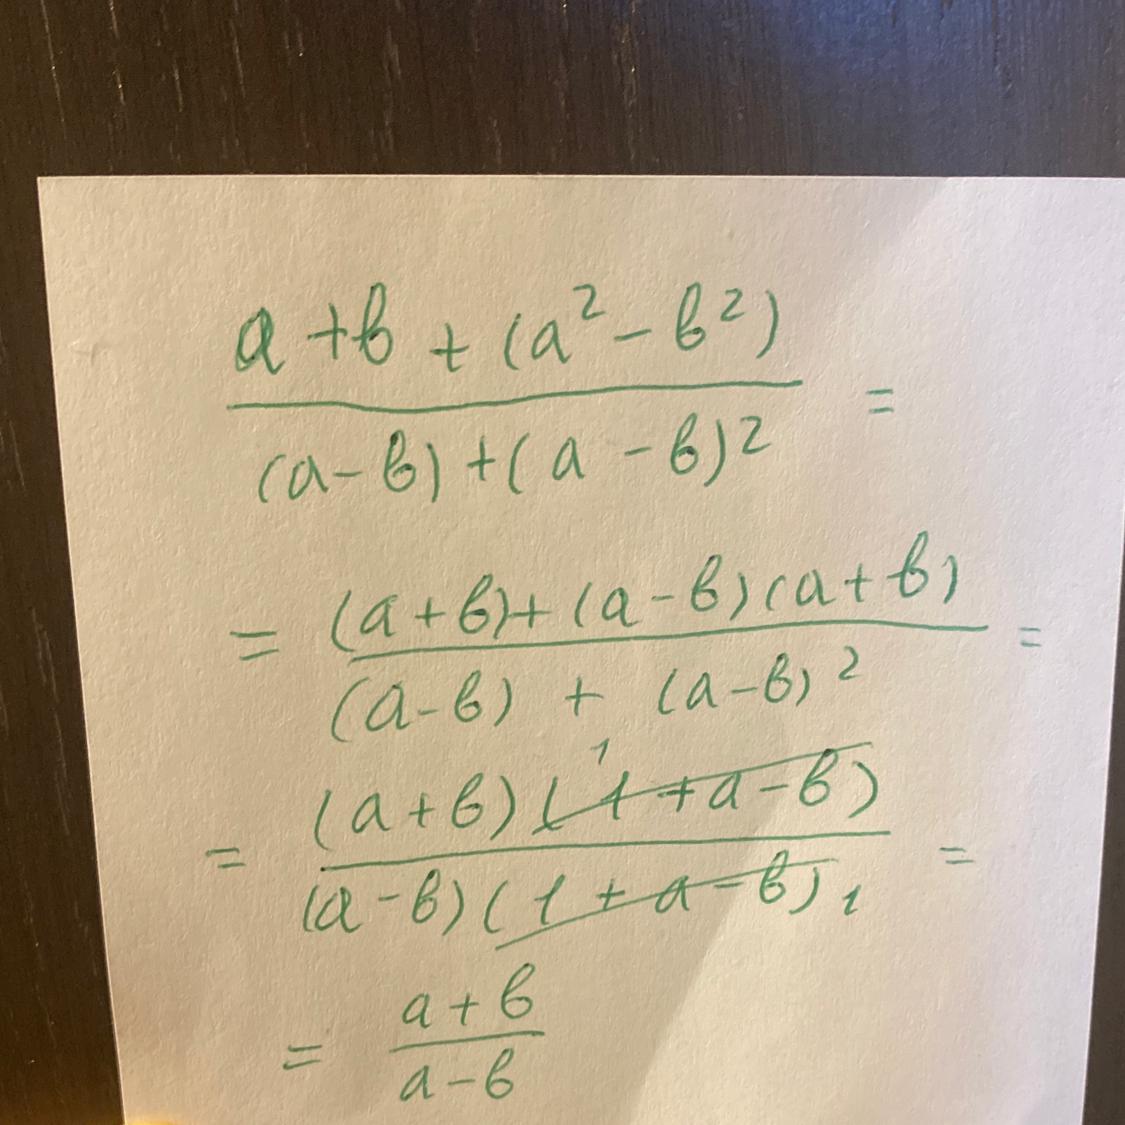 (a + b + (a² - b²)) / ((a - b) + (a - b)²) =
= ((a + b) + (a - b)(a + b)) / ((a - b) + (a - b)²) =
= ((a + b)(1 + a - b) 1) / ((a - b)(1 + a - b) 1) =
= (a + b) / (a - b)